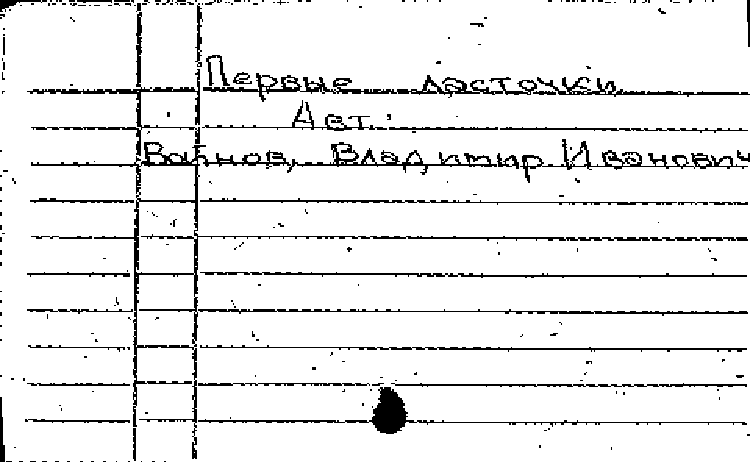 Первые ласточки
Авт.:
Владимир Иванович